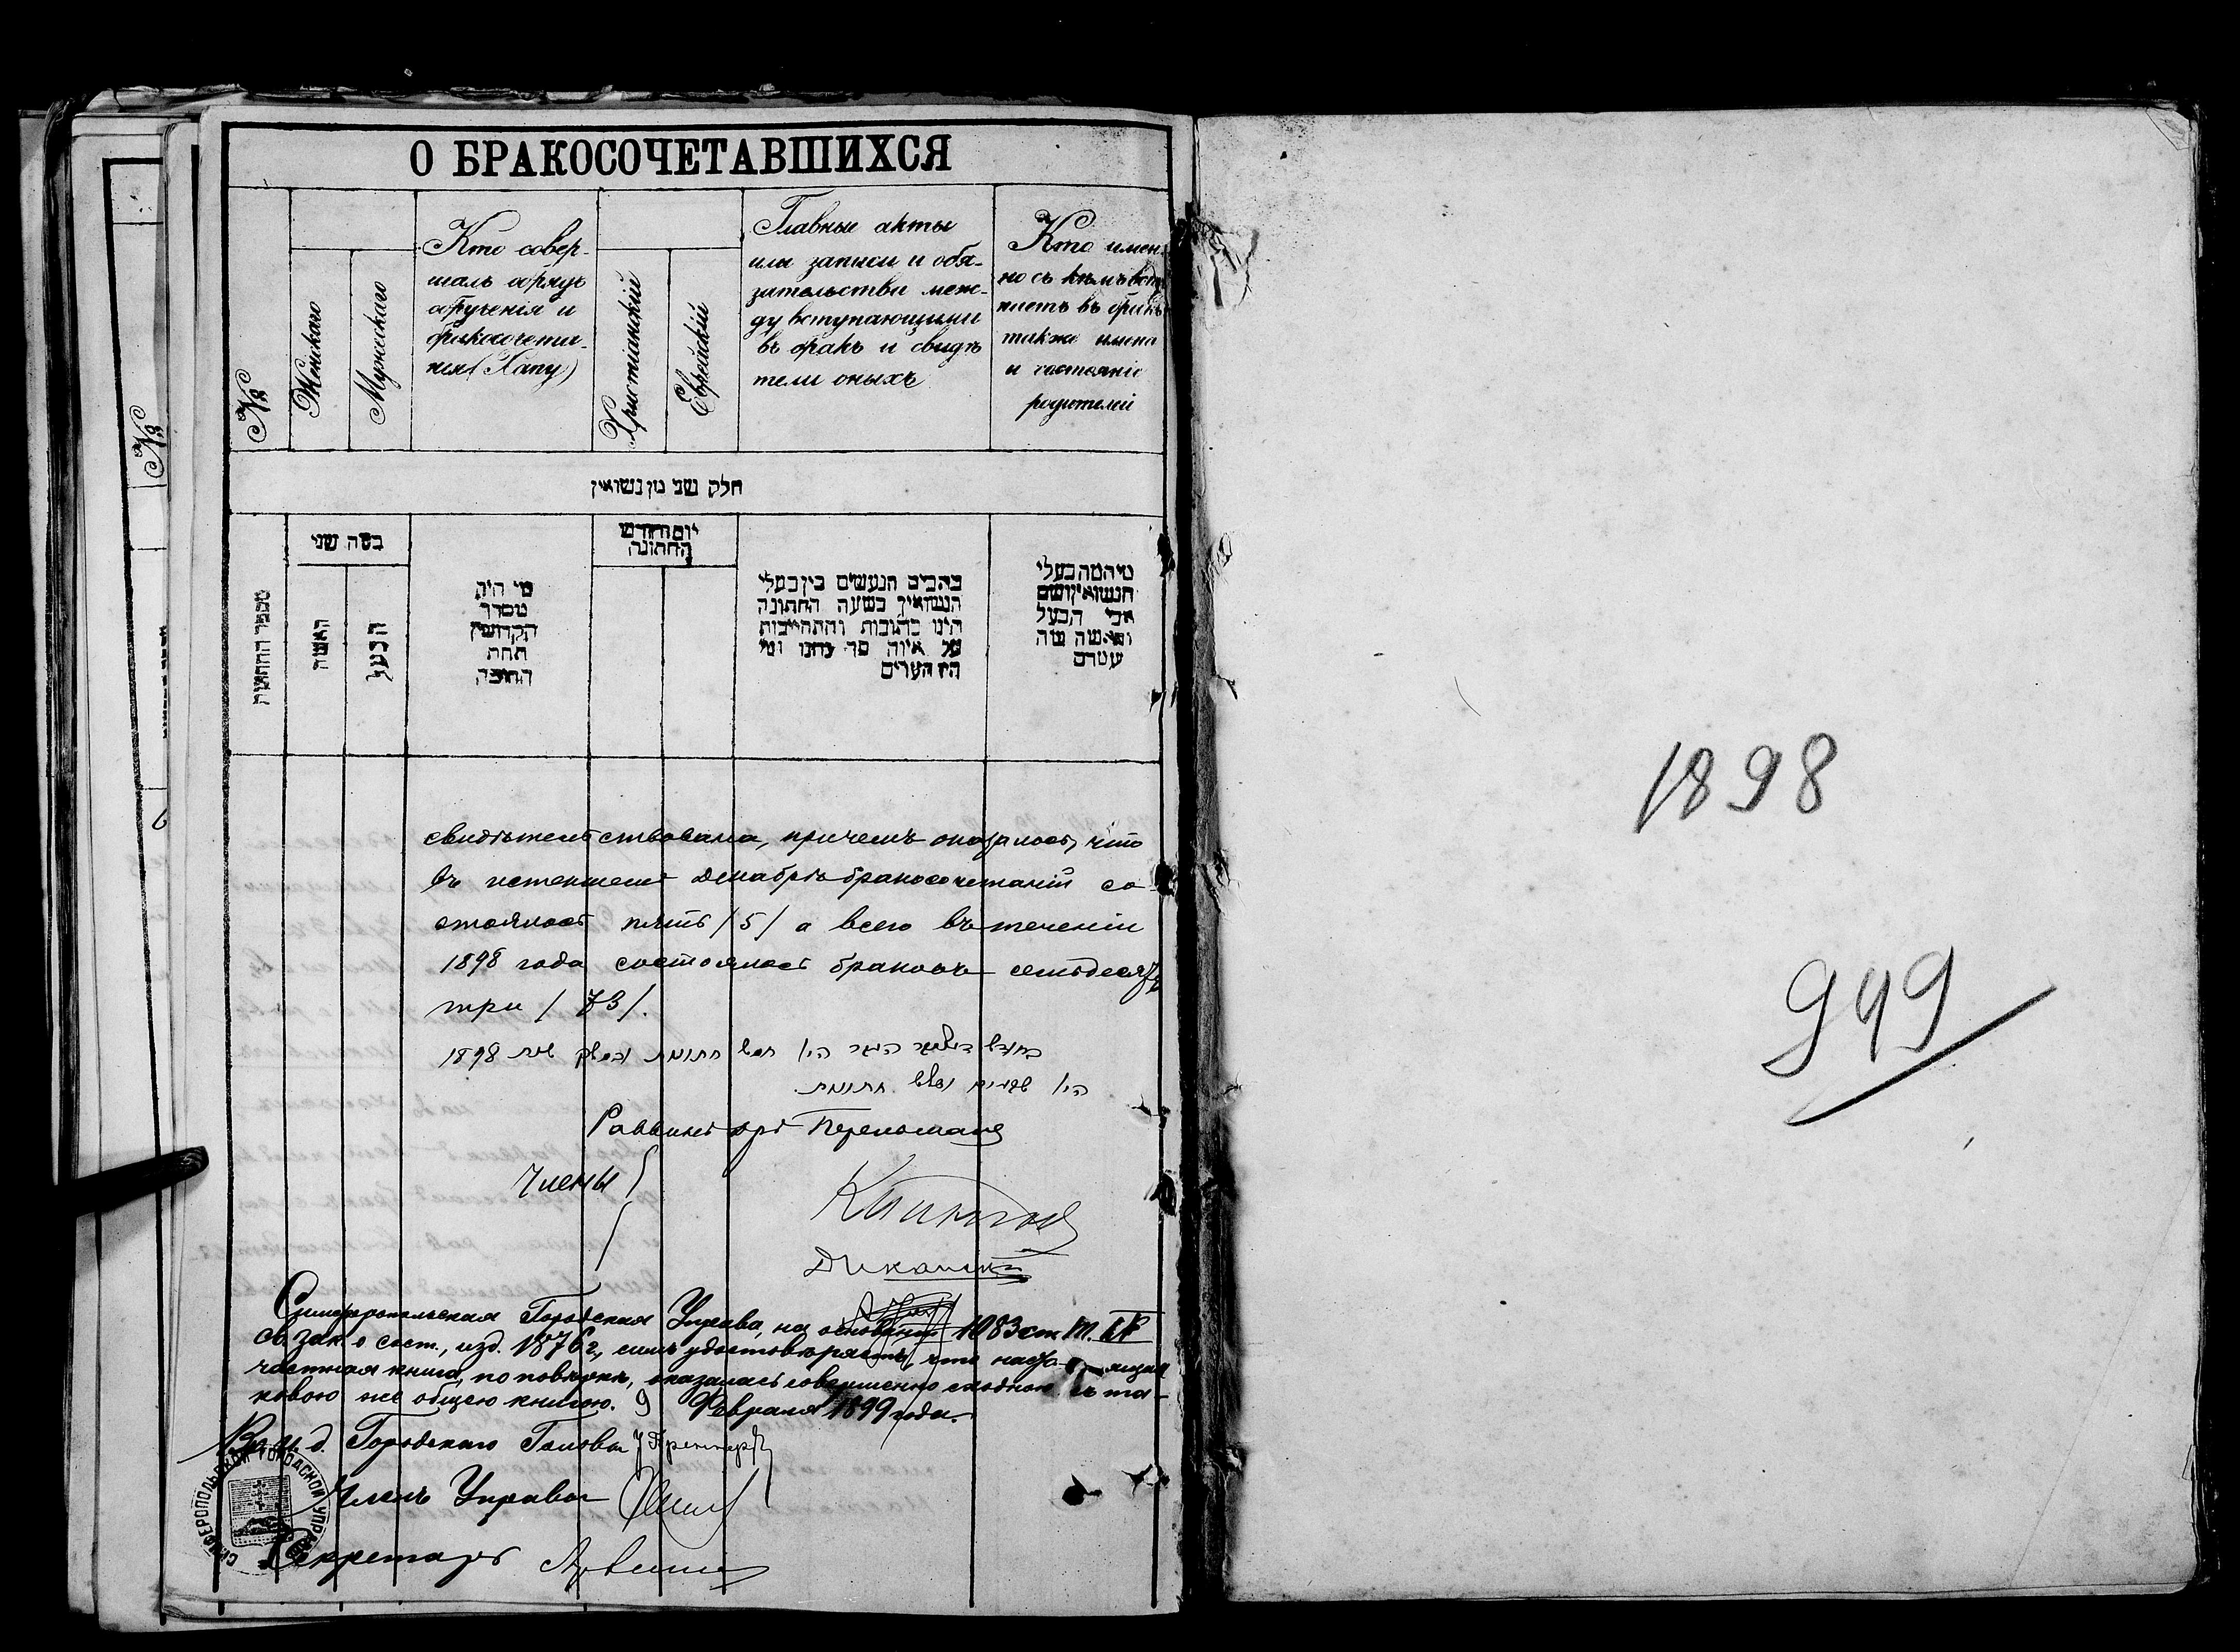 О БРАКОСОЧЕТАВШИХСЯ
№
Женскаго
Мужескаго
Кто совер-
шалъ обрядъ
обрученія и
бракосочета-
нія (Хапу)
Христіанскій
Еврейскій
Главные акты
или записи и обя-
зательства меж-
ду вступающими
въ бракъ и свидѣ
тели оныхъ
Кто имен
но съ кѣмъ вст
паетъ въ бракъ
также имена
и состояніе
родителей
№
חלק שני מן נשואין
מספר החתונות
כמה שני
האשה
הבעל
מי היה
מסדר
הקדושין
תחת
החופה
יום וחודש
החתונה
כתבים הנעשים בין בעלי
הנשואין בשעה החתונה
היינו כתובות והתחייבות
על איזה סך נתנו ומי
היו העדים
מי המה בעלי
הנשואין ושם
אבי הבעל
והאשה ומה
עמדם
свидѣтельствована, причемъ оказалось, что
въ истекшемъ Декабрѣ бракосочетаній со-
стоялось пять /5/ а всего въ теченіи
1898 года состоялось браковъ семьдесятъ
три /73/.
בחודש דעקאבר העבר היו חמש חתונות ובמשך שנת 1898
היו שבעים ושלש חתונות.
Раввинъ
Члены
Симферопольская Городская Управа, на основаніи 1083 ст. т. IX
св. зак. о сост., изд. 1876 г., симъ удостовѣряетъ, что настоящая
частная книга, по повѣркѣ, оказалась совершенно сходною съ та-
ковою же общею книгою. 9 Февраля 1899 года.
Городского Головы
Членъ Управы
Секретарь
СИМФЕРОПОЛЬСКОЙ ГОРОДСКОЙ УПРАВЫ
1898
949